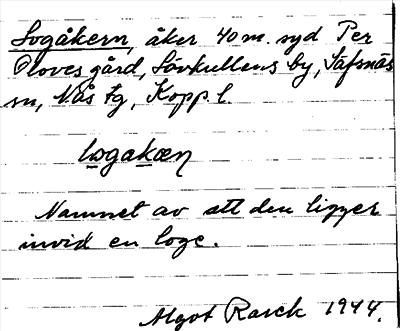 Logåkern, åker 40 m. syd Per
Oloves gård, Lövkullens by, Säfsnäs
sn, Nås tg, Kopp. l.
lωgakæn
Namnet av att den ligger
invid en loge.
Algot Rasck 1944.